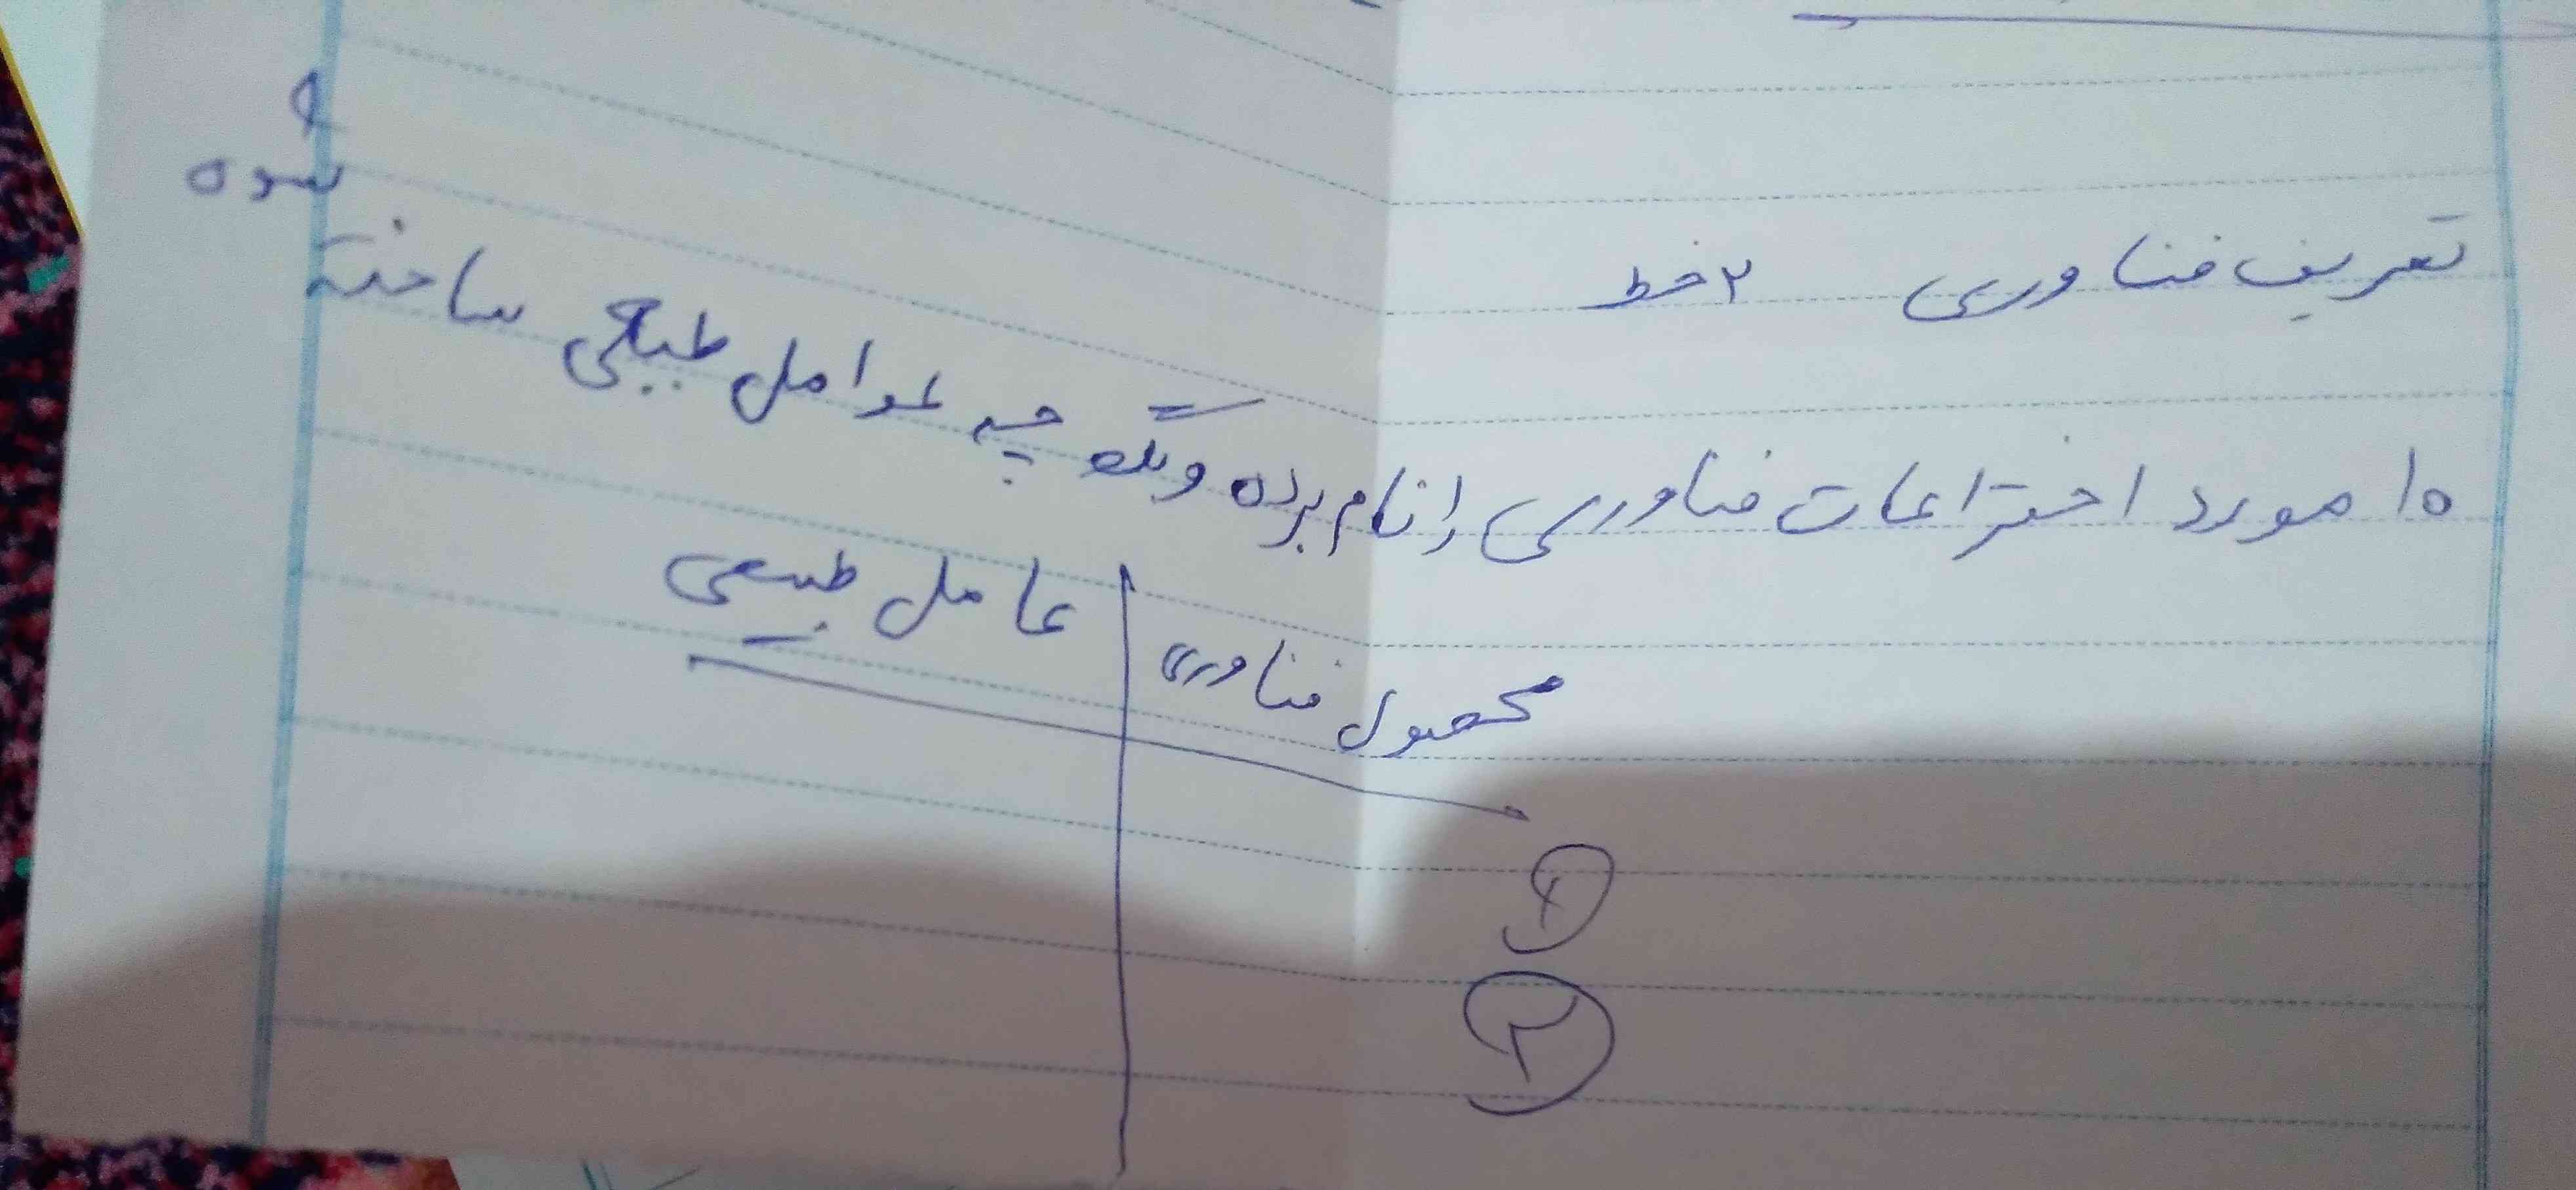 تعریف فناوری ۲ خط
۱۰ مورد اختراعات فناوری را نام برده و بگه چه عوامل طبیعی ساخته شده
محصول فناوری | عامل طبیعی
۱
۲